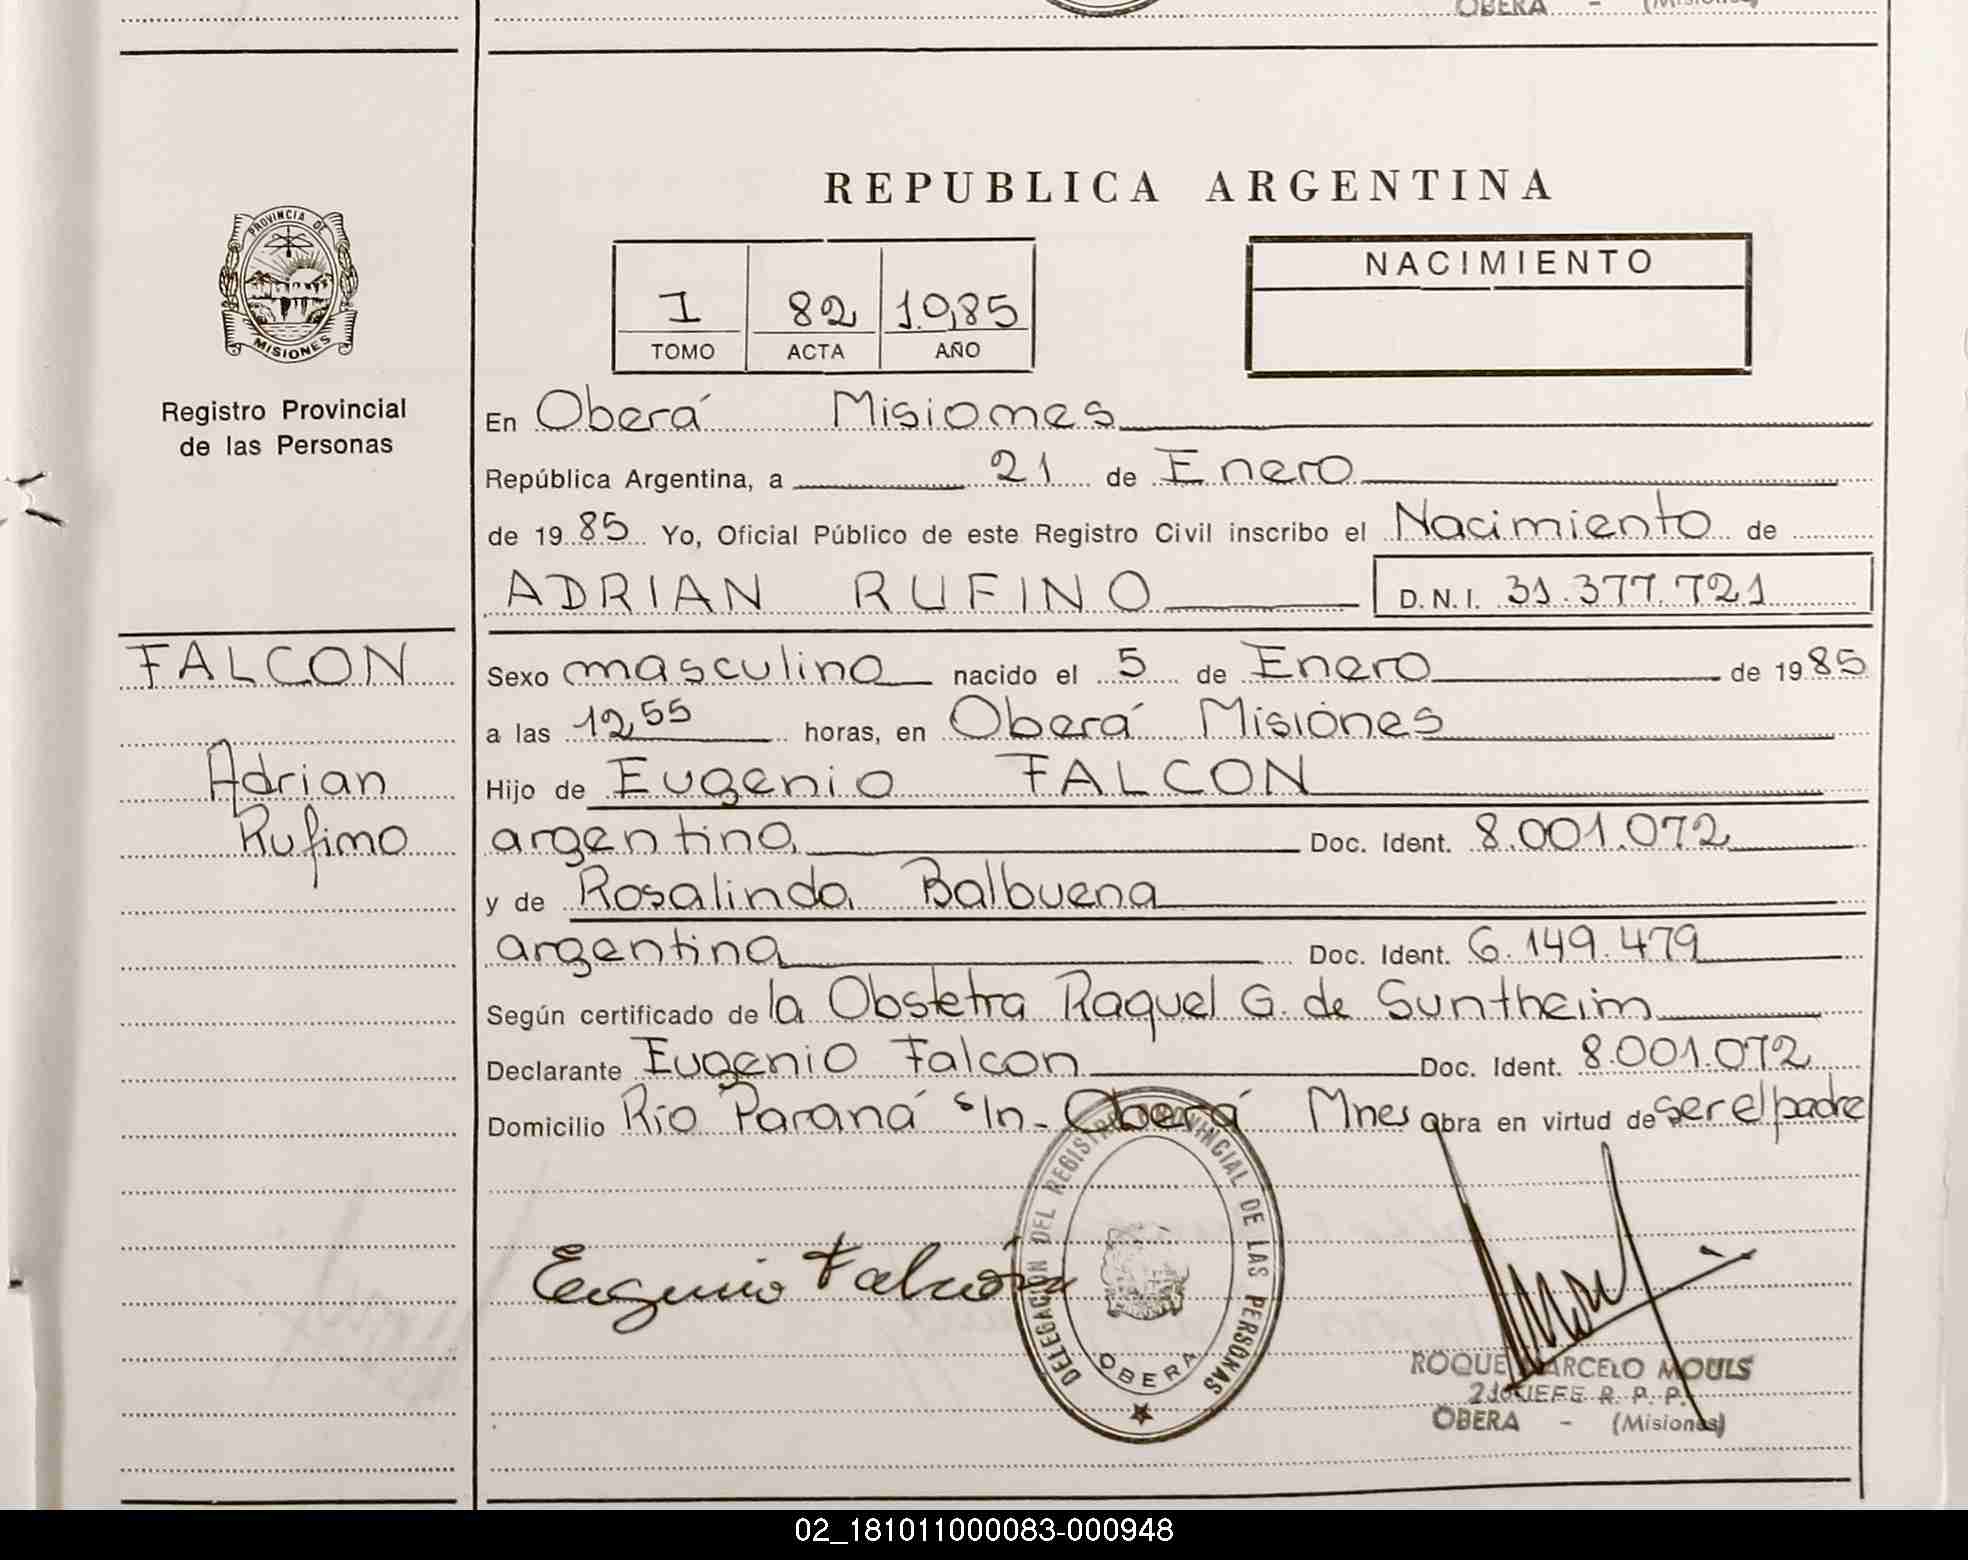 OBERA - (Misiones)
REPUBLICA ARGENTINA
PROVINCIA DE
MISIONES
Registro Provincial
de las Personas
I 82 1.985
TOMO ACTA AÑO
NACIMIENTO
En Oberá Misiones
República Argentina, a 21 de Enero
de 1985 Yo, Oficial Público de este Registro Civil inscribo el Nacimiento de
ADRIAN RUFINO D.N.I. 31.377.721
FALCON
Adrian
Rufino
Sexo masculino nacido el 5 de Enero de 1985
a las 12,55 horas, en Oberá Misiones
Hijo de Eugenio FALCON
argentino Doc. Ident. 8.001.072
y de Rosalinda Balbuena
argentina Doc. Ident. 6.149.479
Según certificado de la Obstetra Raquel G. de Suntheim
Declarante Eugenio Falcon Doc. Ident. 8.001.072
Domicilio Río Paraná s/n - Oberá Mnes Obra en virtud de ser el padre
Eugenio Falcón
DELEGACION DEL REGISTRO PROVINCIAL DE LAS PERSONAS
OBERA
ROQUE MARCELO MOULS
JEFE R. P. P.
OBERA - (Misiones)
02_181011000083-000948